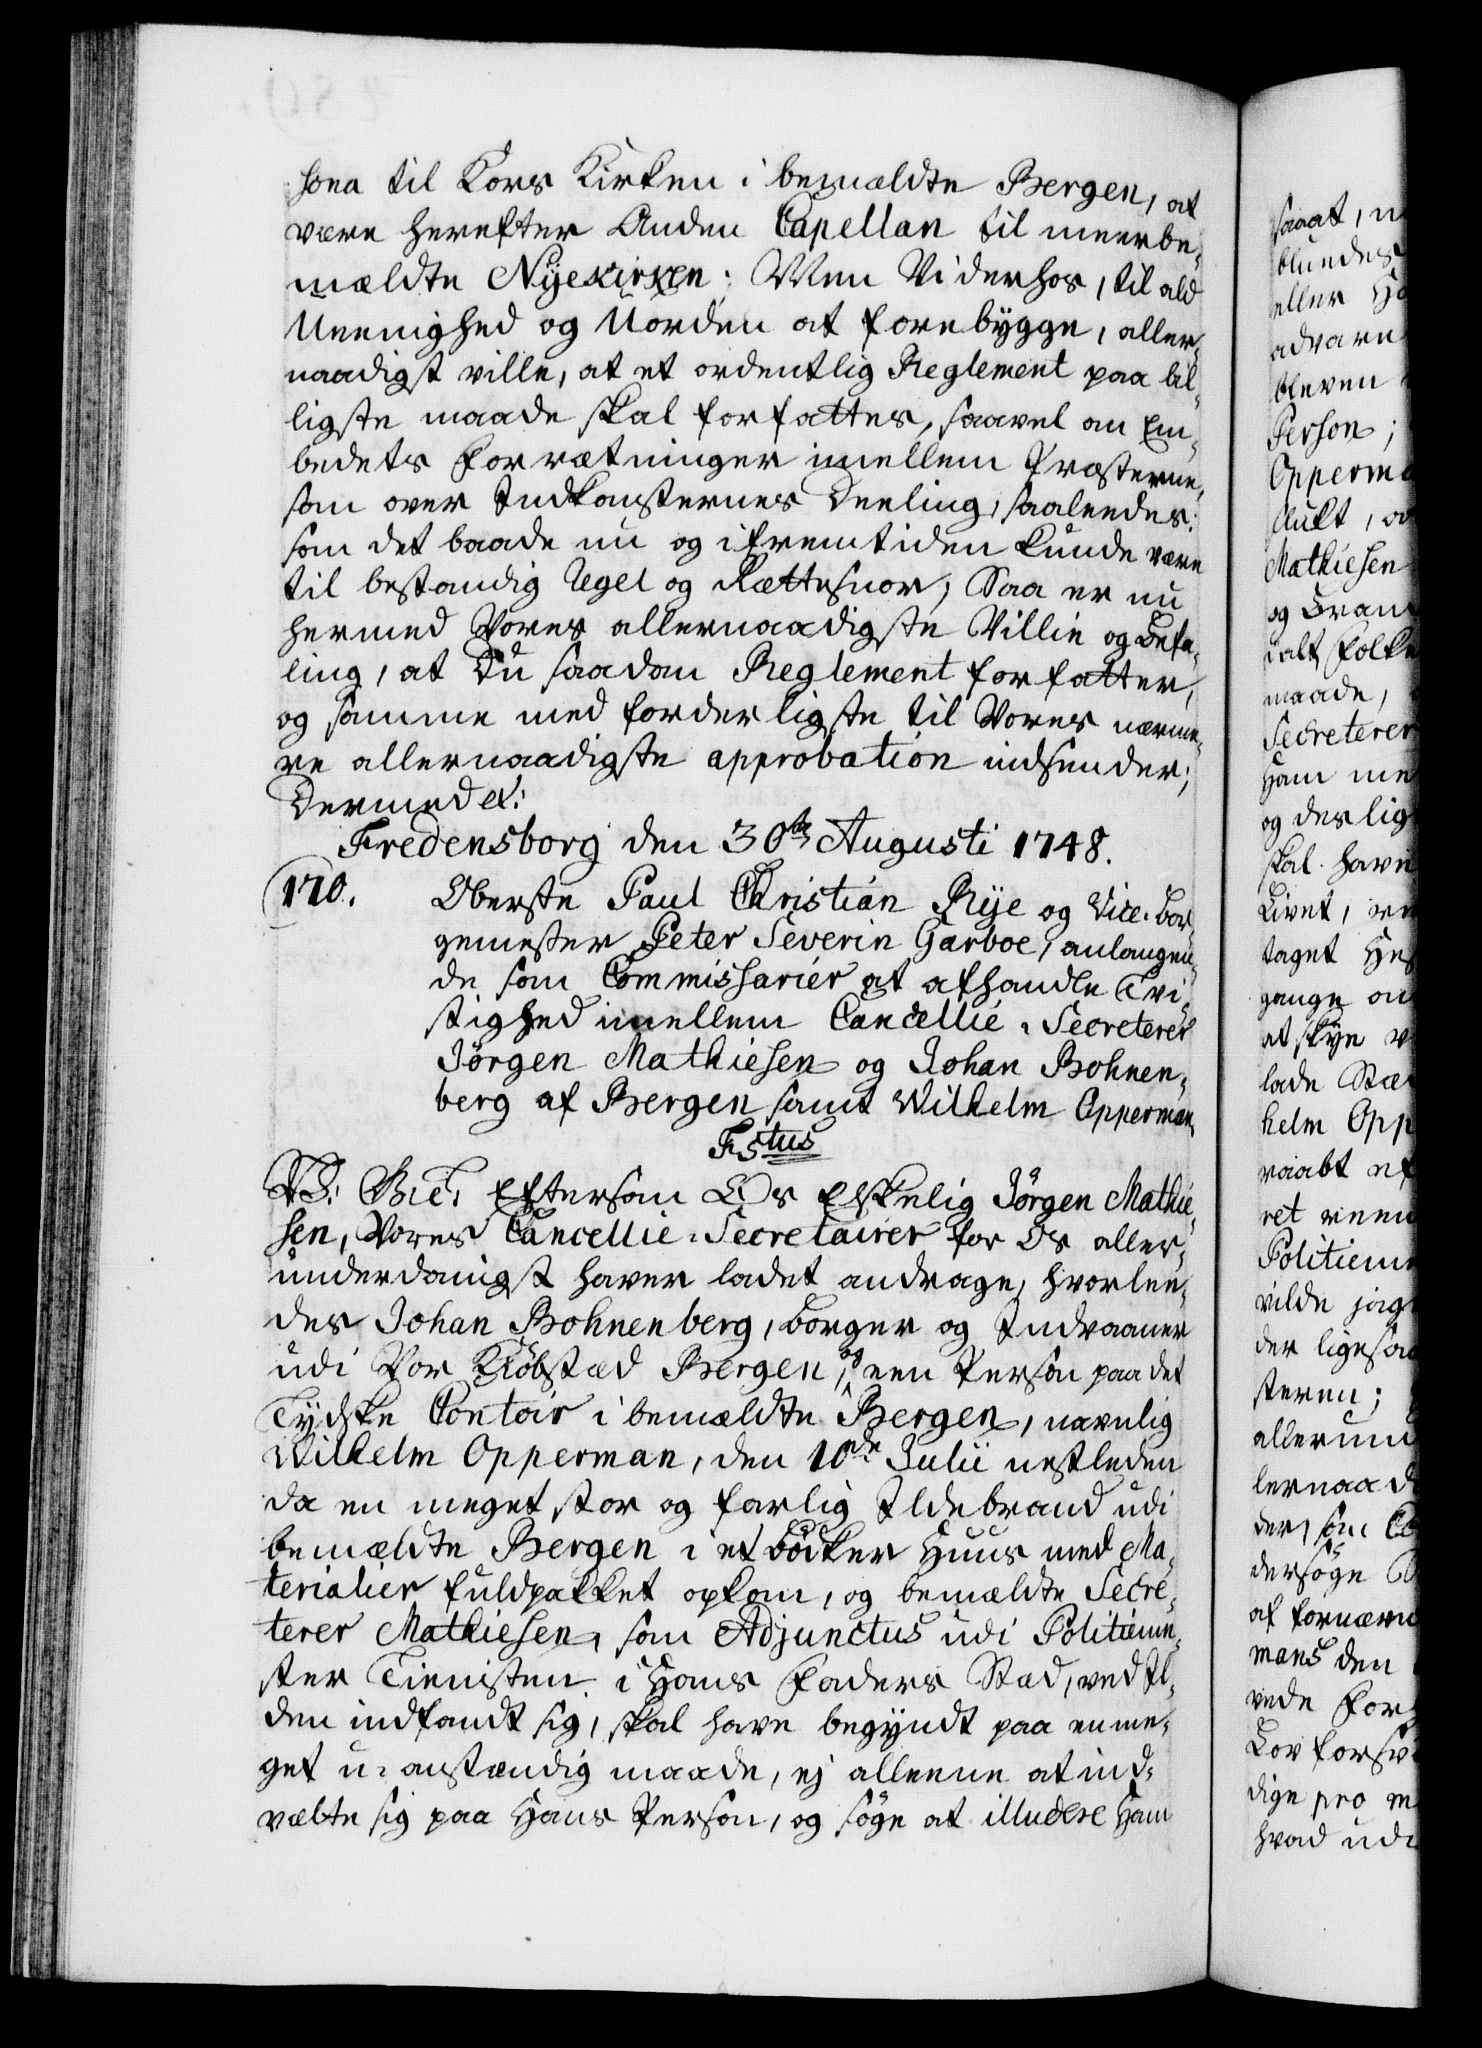 sona til Kors Kirken i bemældte Bergen, at
være herefter Anden Capellan til meerbe-
mældte Nyekirken; Men Vi derhos, til ald
Ueenighed og Uorden at forebygge, aller-
naadigst ville, at et ordentlig Reglement paa bil-
ligste maade skal forfattes, saavel om Em-
bedets Forrætninger imellem Præsterne,
som over Indkomsternes Deeling, saaleedes:
som det baade nu og i fremtiden kunde være
til bestandig Regel og Rættesnor; Saa er nu
hermed Vores allernaadigste Villie og Befa-
ling, at Du saadan Reglement forfatter,
og samme med forderligste til Vores nærme-
re allernaadigste approbation indsender;
Dermed etc:
Fredensborg den 30te Augusti 1748.
170. Oberste Paul Christian Rye og Vice-Bor-
gemester Peter Severin Garboe, anlangen-
de som Commissarier at afhandle Tvi-
stighed imellem Cancellie-Secreterer
Jörgen Mathiesen og Johan Bohnen-
berg af Bergen samt Wilhelm Opperman.
F 5tus
V.G: G.T: Eftersom Os Elskelig Jörgen Mathie-
sen, Vores Cancellie-Secretairer for Os aller-
underdanigst haver ladet andrage, hvorlee-
des Johan Bohnenberg, Borger og Indvaaner
udi Vor Kiöbstæd Bergen, og een Person paa det
Tydske Contoir i bemældte Bergen, navnlig
Wilhelm Opperman, den 10de Julii nestleden
da en meget stor og farlig Ildebrand udi
bemældte Bergen i et Böcker Huus med Ma-
terialier fuldpakket opkom, og bemældte Secre-
terer Mathiesen, som Adjunctus udi Politieme-
ster Tienisten i Hans Faders Stæd, ved Il-
den indfandt sig, skal have begyndt paa en me-
get u-anstændig maade, ej alleene at ind-
væbte sig paa Hans Person, og söge at illudere Ham